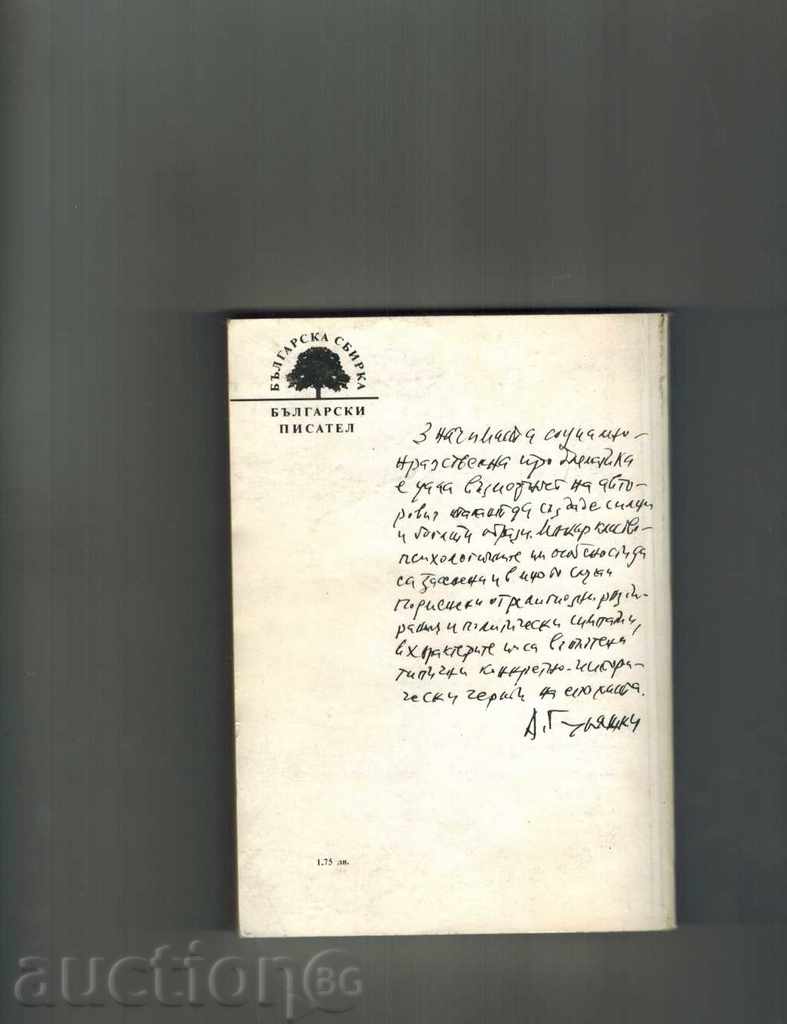 БЪЛГАРСКА СБИРКА
БЪЛГАРСКИ
ПИСАТЕЛ
Значимата социално-
нравствена проблематика
е дала възможност на авто-
ровия талант да създаде силни
и богати образи. Макар
психологичните им особености да
са засенени и в много случаи
подчинени от религиозни
и политически
в характерите им са въплътени
типични конкретно-истори-
чески черти на епохата.
А. Гуляшки
1.75 лв.
auctionBG